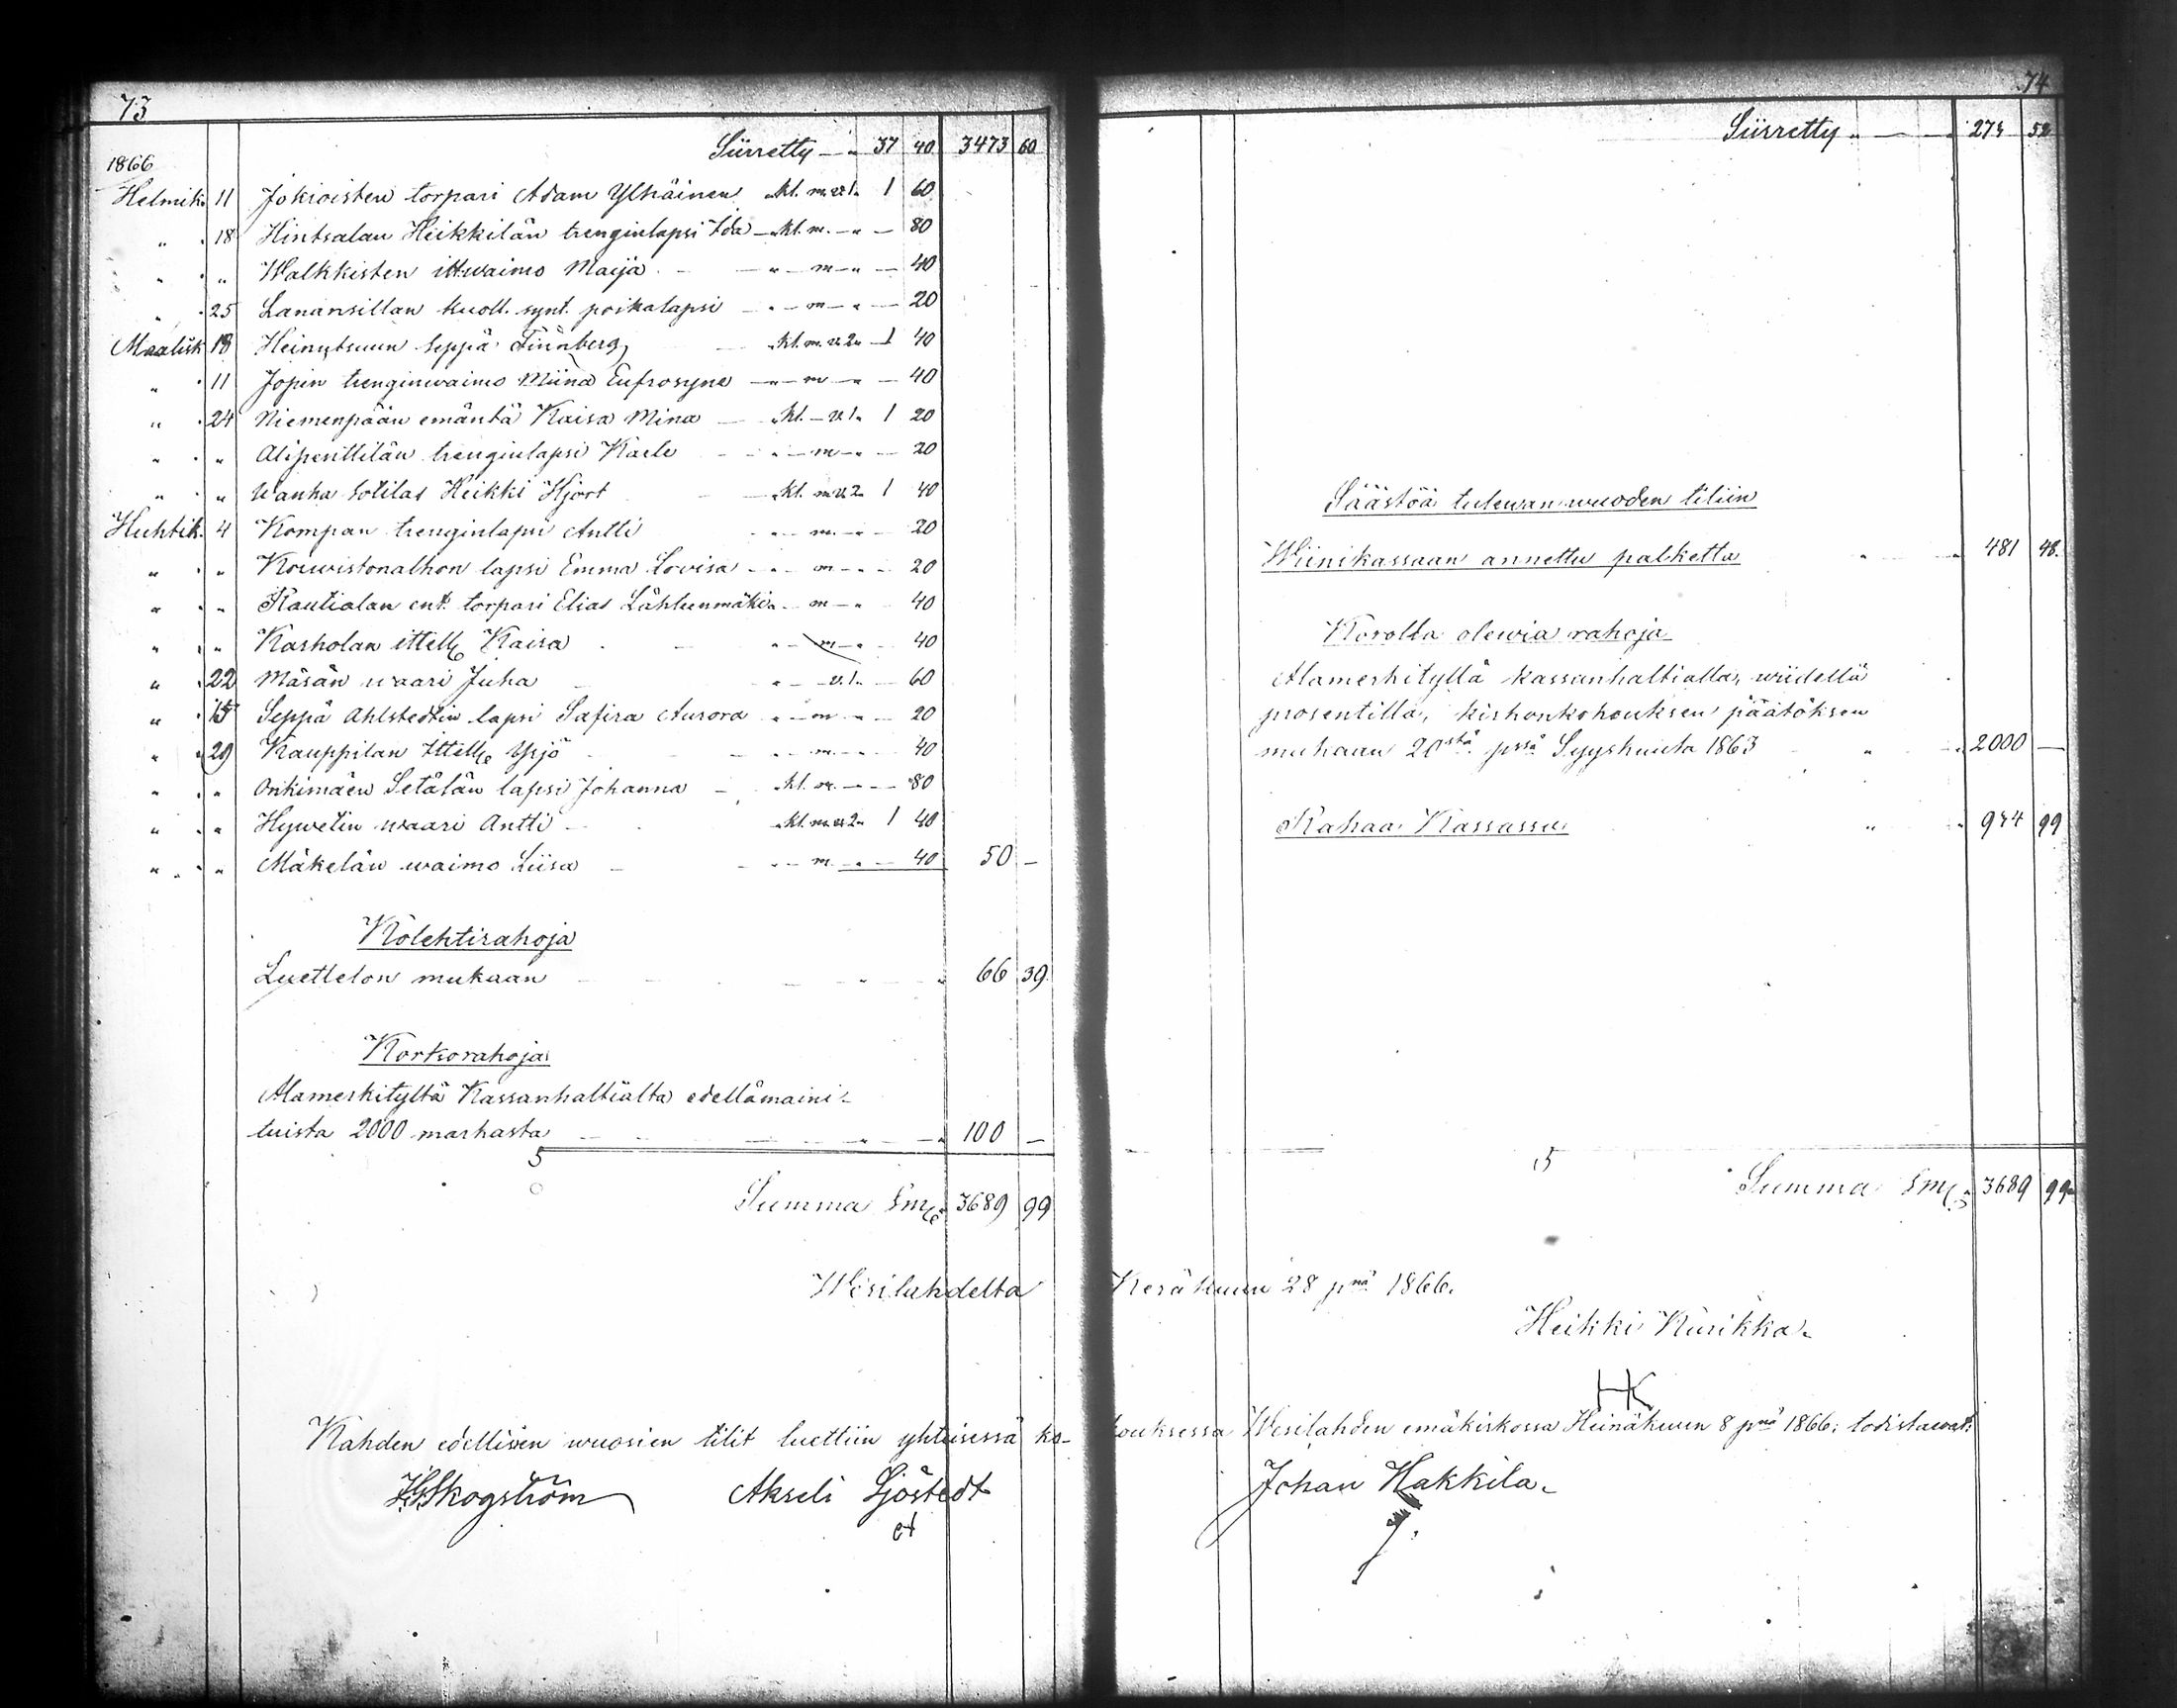 73
Siirretty — „ 37 40 3473 60
1866
Helmik. 11 Jokioisten torpari Adam Ylhäinen „ kl. m. v. 1. 1 60
„ „ 18 Hintsalan Heikkilän trenginlapsi Ida — „ kl. m. — „ — 80
„ „ „ Walkkisten ittwaimo Maija — „ — m — „ — 40
„ „ 25 Lanansillan kuoll. synt. poikalapsi — „ — m — „ — 20
Maalisk 18 Heinutsuun seppä „ kl. m. v. 2 „ — 1 40
„ „ 11 Jopin trenginwaimo Miina Eufrosyne — „ — m — „ — 40
„ „ 24 Niemenpään emäntä Kaisa Mina — „ kl. — v. 1 „ 1 20
„ „ „ Alipenttilän trenginlapsi Karle — „ — m — „ — 20
„ „ „ Wanha sotilas Heikki Hjort — „ kl. m. v. 2 „ 1 40
Huhtik. 4 Kompan trenginlapsi Antti „ — m. — „ — 20
„ „ „ Kouwistonalhon lapsi Emma Lovisa — „ — m — „ — 20
„ „ „ Rautialan ent. torpari Elias Lähteenmäki „ — m — „ 40
„ „ „ Karholan ittell Kaisa — „ — m — „ 40
„ „ 22 Mäsän waari Juha „ — v. 1. — 60
„ „ 15 Seppä Ahlstedtin lapsi Safira Aurora „ — m — „ — 20
„ „ 29 Kauppilan Ittell Yrjö „ — m. — „ 40
„ „ „ Onkimäen Setälän lapsi Johanna — „ kl. m. — „ — 80
„ „ „ Hywetin waari Antti „ kl. m. v. 2 „ 1 40
„ „ „ Mäkelän waimo Liisa — „ — m. — „ — 40 50 —
Kolehtirahoja
Luettelon mukaan 66 39
Korkorahoja
Alamerkityltä Kassanhaltialta edellämaini-
tuista 2000 markasta 100 —
Summa Smk 3689 99
74
Siirretty „ — „ 273 52
Säästöä tulewan wuoden tiliin
Wiinikassaan annettu palketta „ „ 481 48.
Korolla olewia rahoja
Alamerkityllä kassanhaltialla, wiidellä
prosentilla, kirkonkokouksen päätöksen
mukaan 20stä pstä Syyskuuta 1863 „ „ 2000 —
Rahaa Kassassa „ „ 934 99
Summa Smk 3689 99
Wesilahdelta Kesäkuun 28 pnä 1866.
Heikki Kurikka.
HK
Kahden edellisen wuosien tilit luettiin yhteisessä ko-kouksessa Wesilahden emäkirkossa Heinäkuun 8 pnä 1866; todistawat:
Skogström Akseli Sjöstedt Johan Hakkila.